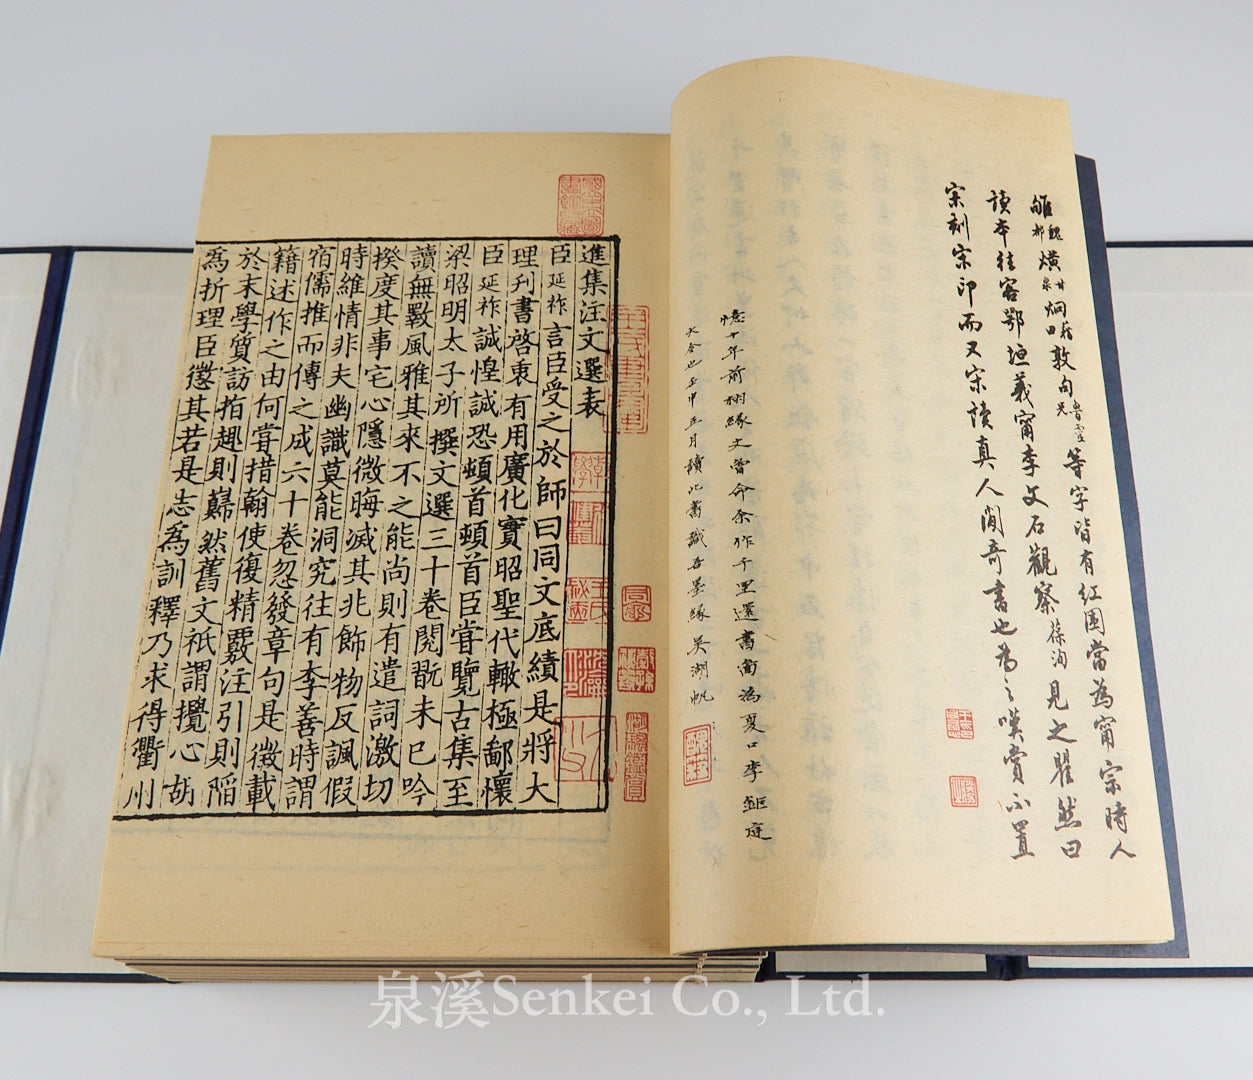 等字皆有红圈當為甯宗時人
讀本往客鄂垣義甯李文石觀察葆洵見之瞿然曰
宋刻宋印而又宋讀真人閒奇書也為之嘆賞不置
憶十年前翔緣丈曾命余作千里選書圖為夏口李鉅庭
大令也壬申五月讀此書識吾墨緣吳湖帆
進集注文選表
臣延祚言臣受之於師曰同文底績是將大
理刋書啓衷有用廣化實昭聖代轍極鄙懷
臣延祚誠惶誠恐頓首頓首臣嘗覽古集至
梁昭明太子所撰文選三十卷閱翫未已吟
讀無斁風雅其來不之能尚則有遣詞激切
揆度其事宅心隱微晦滅其兆飾物反諷假
時維情非夫幽識莫能洞究往有李善時謂
宿儒推而傳之成六十卷忽發章句是徵載
籍述作之由何嘗措翰使復精覈注引則陷
於末學質訪指趣則巋然舊文祇謂攪心胡
為折理臣懲其若是志為訓釋乃求得衢州
泉溪Senkei Co., Ltd.